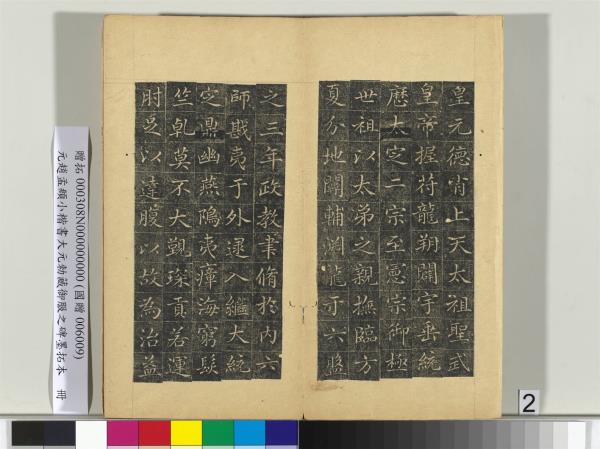 皇元德胄上天太祖聖武
皇帝握符龍朔闢宇垂統
歷太定二宗至憲宗御極
世祖以太弟之親撫臨方
夏分地關輔淵龍于六盤
之三年政教聿脩於內六
師戡夷于外還入繼大統
定鼎幽燕隝夷瘴海窮髮
竺乹莫不大覲琛貢若運
肘足以達腹以故為治益
贈拓 000308N000000000 (國贈 006009)
元趙孟頫小楷書大元勅藏御服之碑墨拓本 冊
2